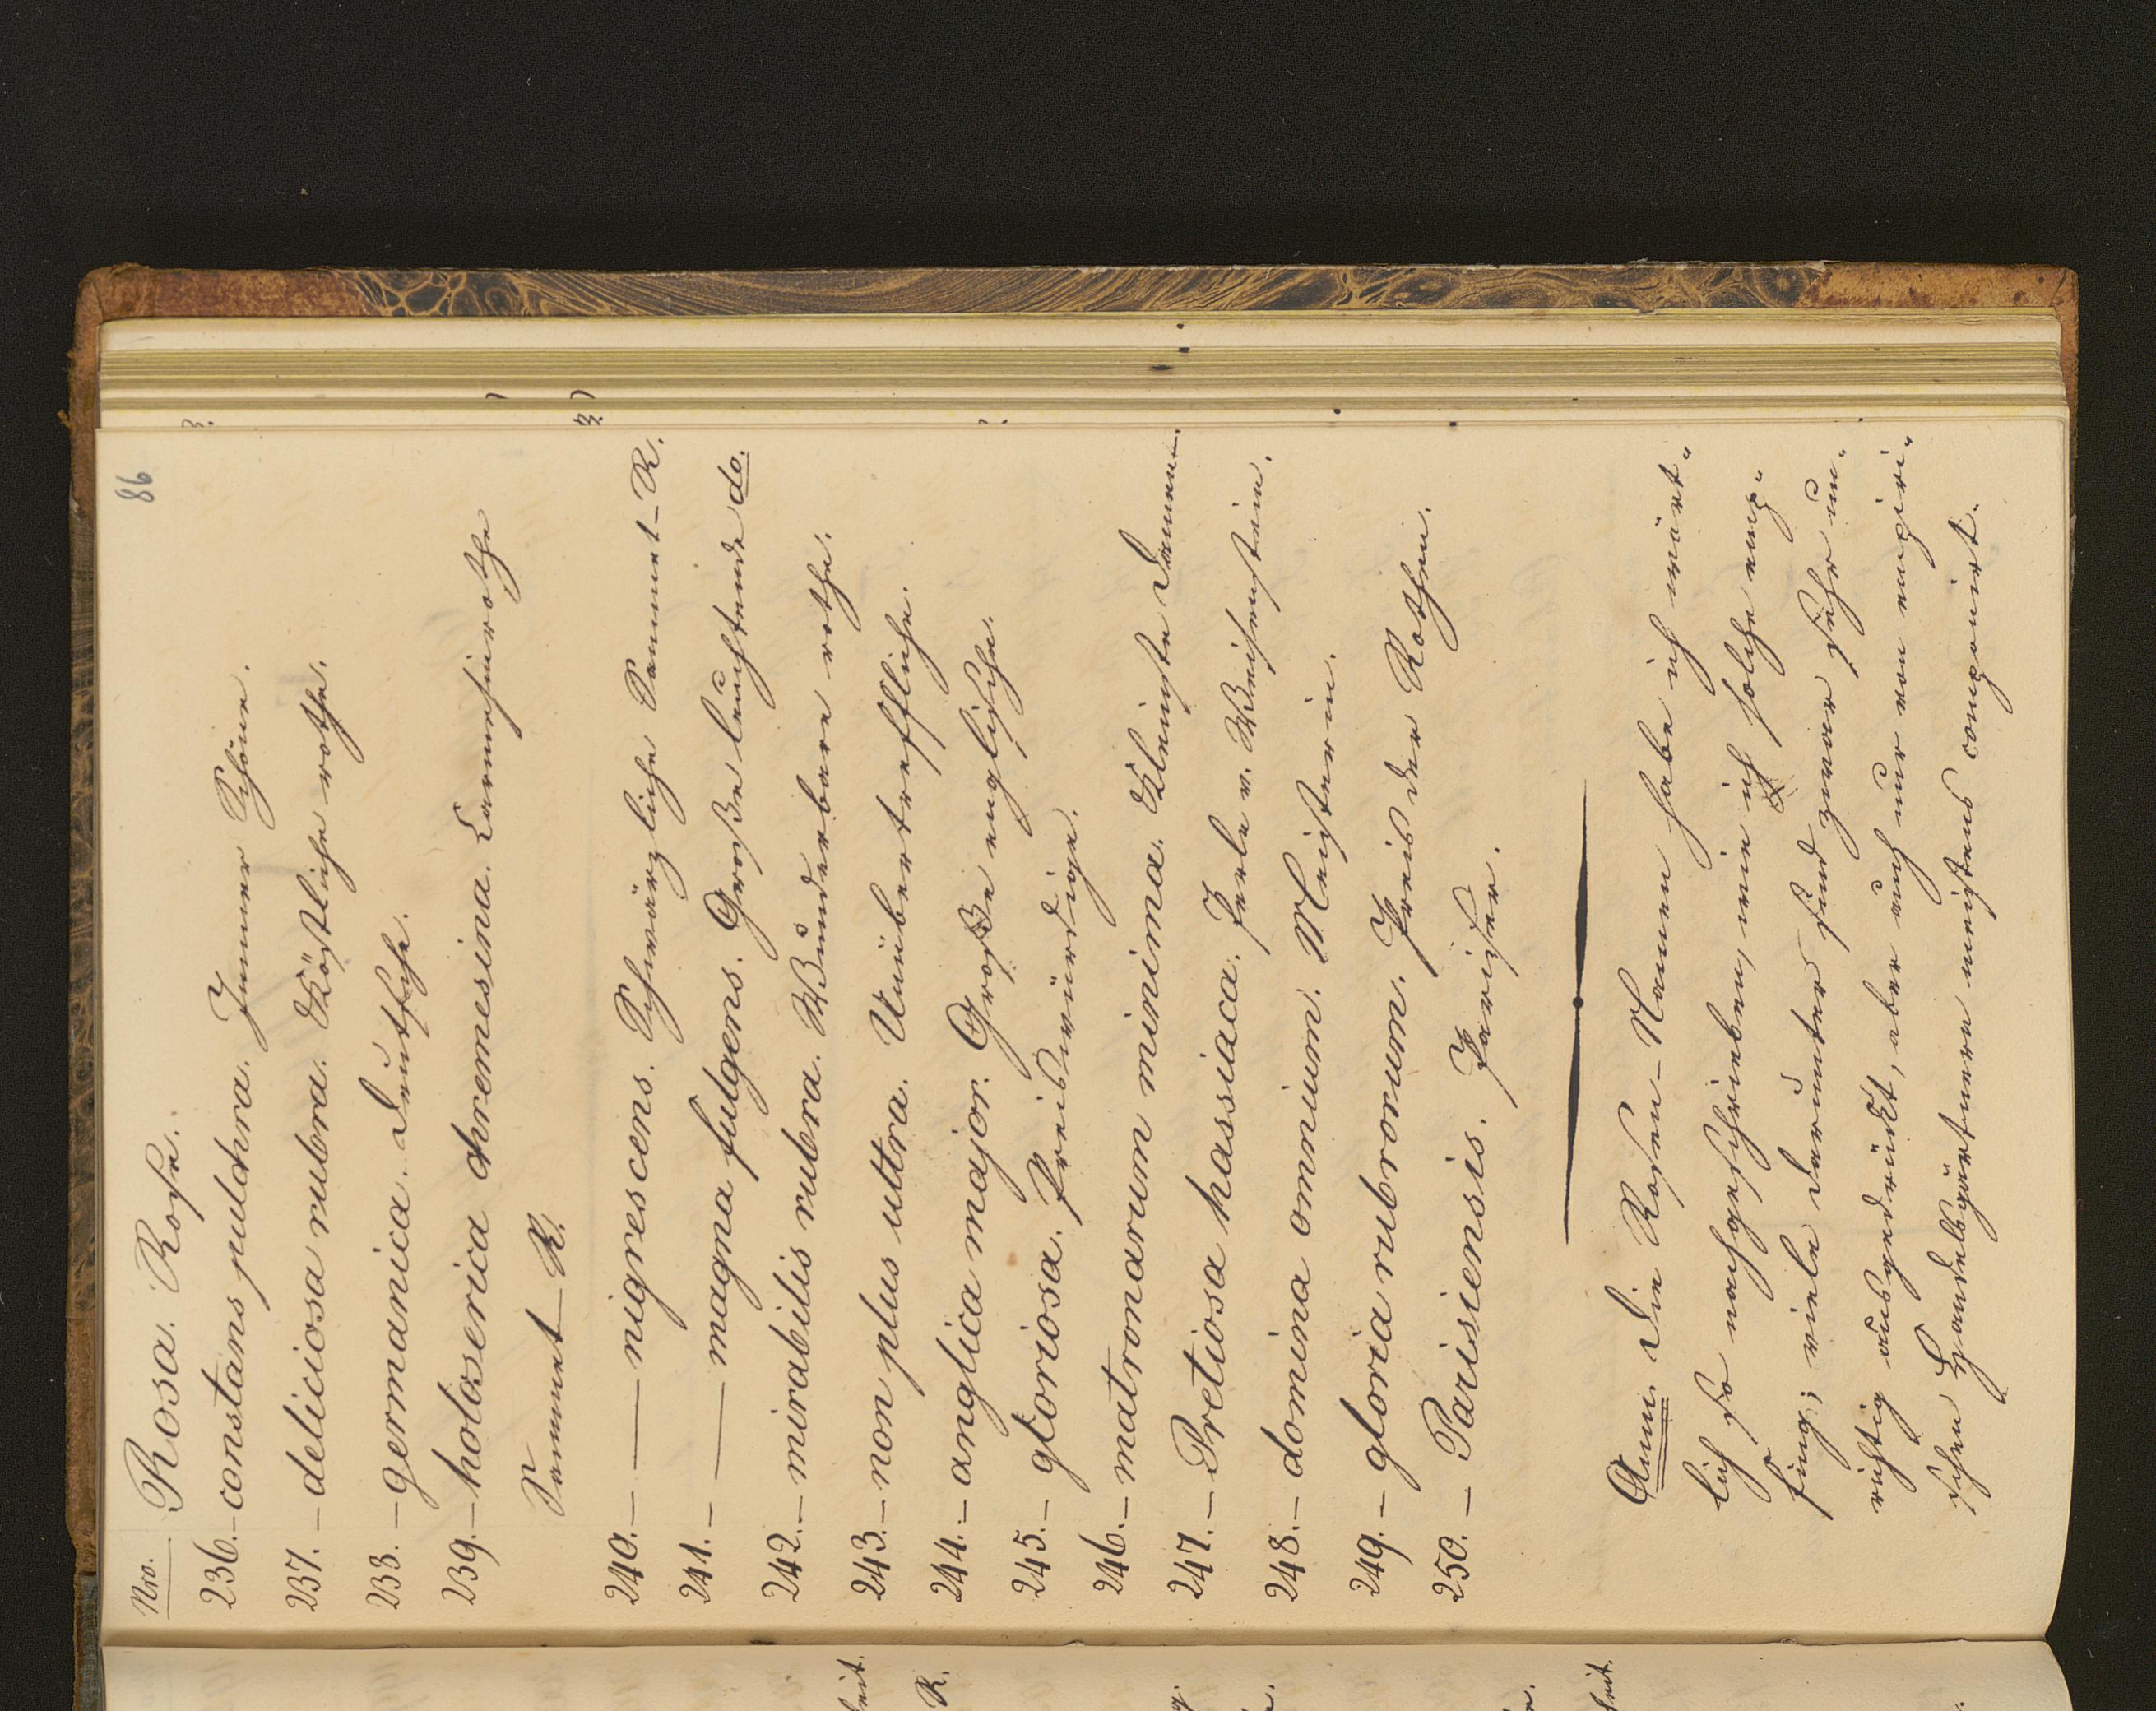 86
Nro. Rosa. Rose.
236. – constans pulchra. Immer Schöne.
237. – deliciosa rubra. Köstliche rothe.
238. – germanica. Deutsche.
239. – holoserica chremesina. Carmesinrothe
Sammet–R.
240. – — nigrescens. Schwärzliche Sammet–R.
241. – — magna fulgens. Große leuchtende do.
242. – mirabilis rubra. Wunderbare rothe.
243. – non plus ultra. Unübertreffliche.
244. – anglica major. Große englische.
245. – gloriosa. Preiswürdige.
246. – matronarum minima. Kleinste Damen–
247. – Pretiosa hassiaca. Perle v. Weißenstein.
248. – domina omnium. Meisterin.
249. – gloria rubrorum. Preis der Rothen.
250. – Parisiensis. Pariser.
Anm. Die Rosen–Namen habe ich wört-
lich so nachgeschrieben, wie ich solche emp-
fing; viele darunter sind zwar sehr un-
richtig ausgedrückt, aber auch nur von empiri-
schen Handelsgärtnern meistens componirt.